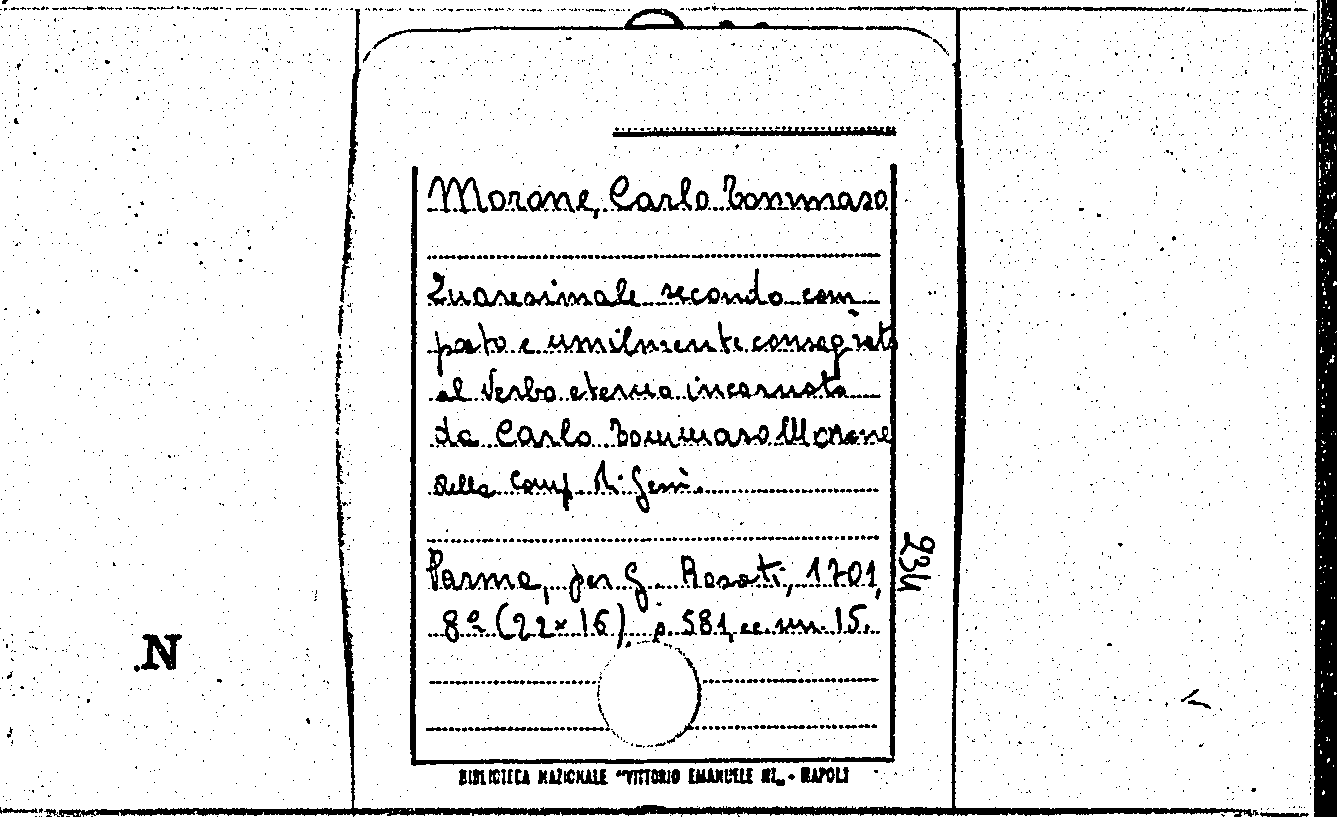 Morone, Carlo Tommaso
Quaresimale secondo com
pato e umilmente consagrato
al Verbo eterno incarnato
da Carlo Tommaso Morone
della Comp. di Gesù.
Parma, per G. Rosati, 1701,
8º (22×16) p. 581, cc. nn. 15.
234
N
BIBLIOTECA NAZIONALE "VITTORIO EMANUELE III„ - NAPOLI